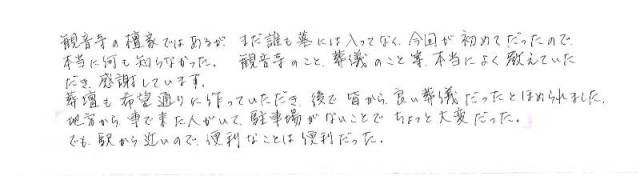 観音寺の檀家ではあるが、まだ誰も墓には入ってなく、今回が初めてだったので、
本当に何も知らなかった。 観音寺のこと、葬儀のこと等、本当によく教えていた
だき、感謝しています。
葬壇も希望通りに作っていただき、後で皆から、良い葬儀だったとほめられました。
地方から、車で来た人がいて、駐車場がないことでちょっと大変だった。
でも、駅から近いので、便利なことは便利だった。